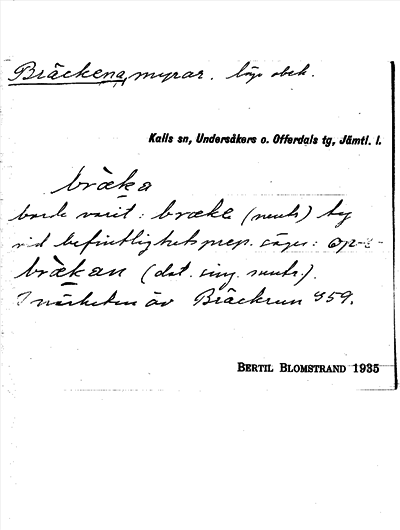 Bräckena, myrar. läge obek.
Kalls sn, Undersåkers o. Offerdals tg, Jämtl. l.
bräka
borde varit: bræke (neutr.) ty
vid befintlighetsprep. säges: op-i-
bräkan (dat. sing. neutr.).
I närheten äv Bräckrun 959.
BERTIL BLOMSTRAND 1935